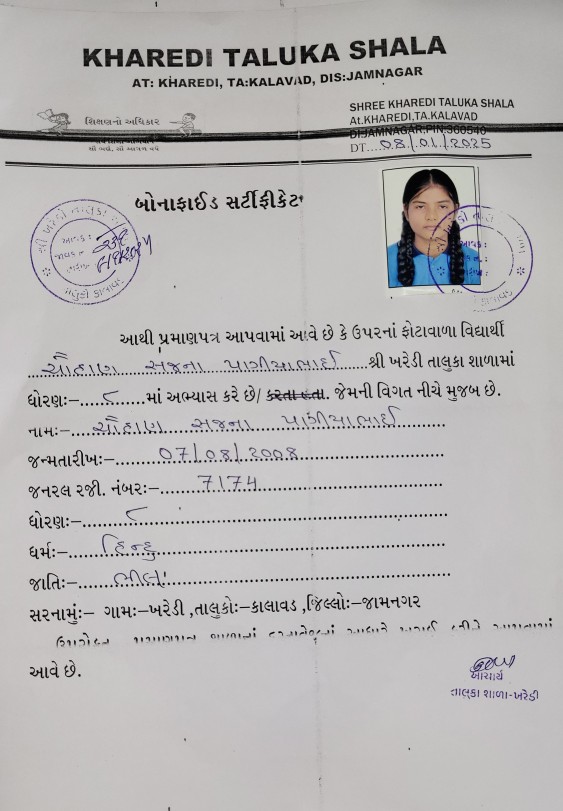 KHAREDI TALUKA SHALA
AT: KHAREDI, TA:KALAVAD, DIS:JAMNAGAR
શિક્ષણનો અધિકાર
સૌ ભણે, સૌ આગળ વધે
SHREE KHAREDI TALUKA SHALA
At.KHAREDI,TA.KALAVAD
DI:JAMNAGAR,PIN:360540
DT....08/01/2025
બોનાફાઈડ સર્ટીફીકેટ
શ્રી ખરેડી તાલુકા
આવક :
જાવક નં
તાલુકો કાલાવડ
આથી પ્રમાણપત્ર આપવામાં આવે છે કે ઉપરનાં ફોટાવાળા વિદ્યાર્થી
ચૌહાણ સજના પાંગીયાભાઈ શ્રી ખરેડી તાલુકા શાળામાં
ધોરણઃ-.....૮.....માં અભ્યાસ કરે છે/ કરતા હતા. જેમની વિગત નીચે મુજબ છે.
નામઃ-...ચૌહાણ સજના પાંગીયાભાઈ
જન્મતારીખઃ-......07/08/2008
જનરલ રજી. નંબરઃ-......7174
ધોરણઃ-......૮
ધર્મઃ-...હિન્દુ
જાતિઃ-....ભીલ
સરનામુંઃ- ગામઃ-ખરેડી ,તાલુકોઃ-કાલાવડ ,જિલ્લોઃ-જામનગર
આવે છે.
આચાર્ય
તાલુકા શાળા-ખરેડી